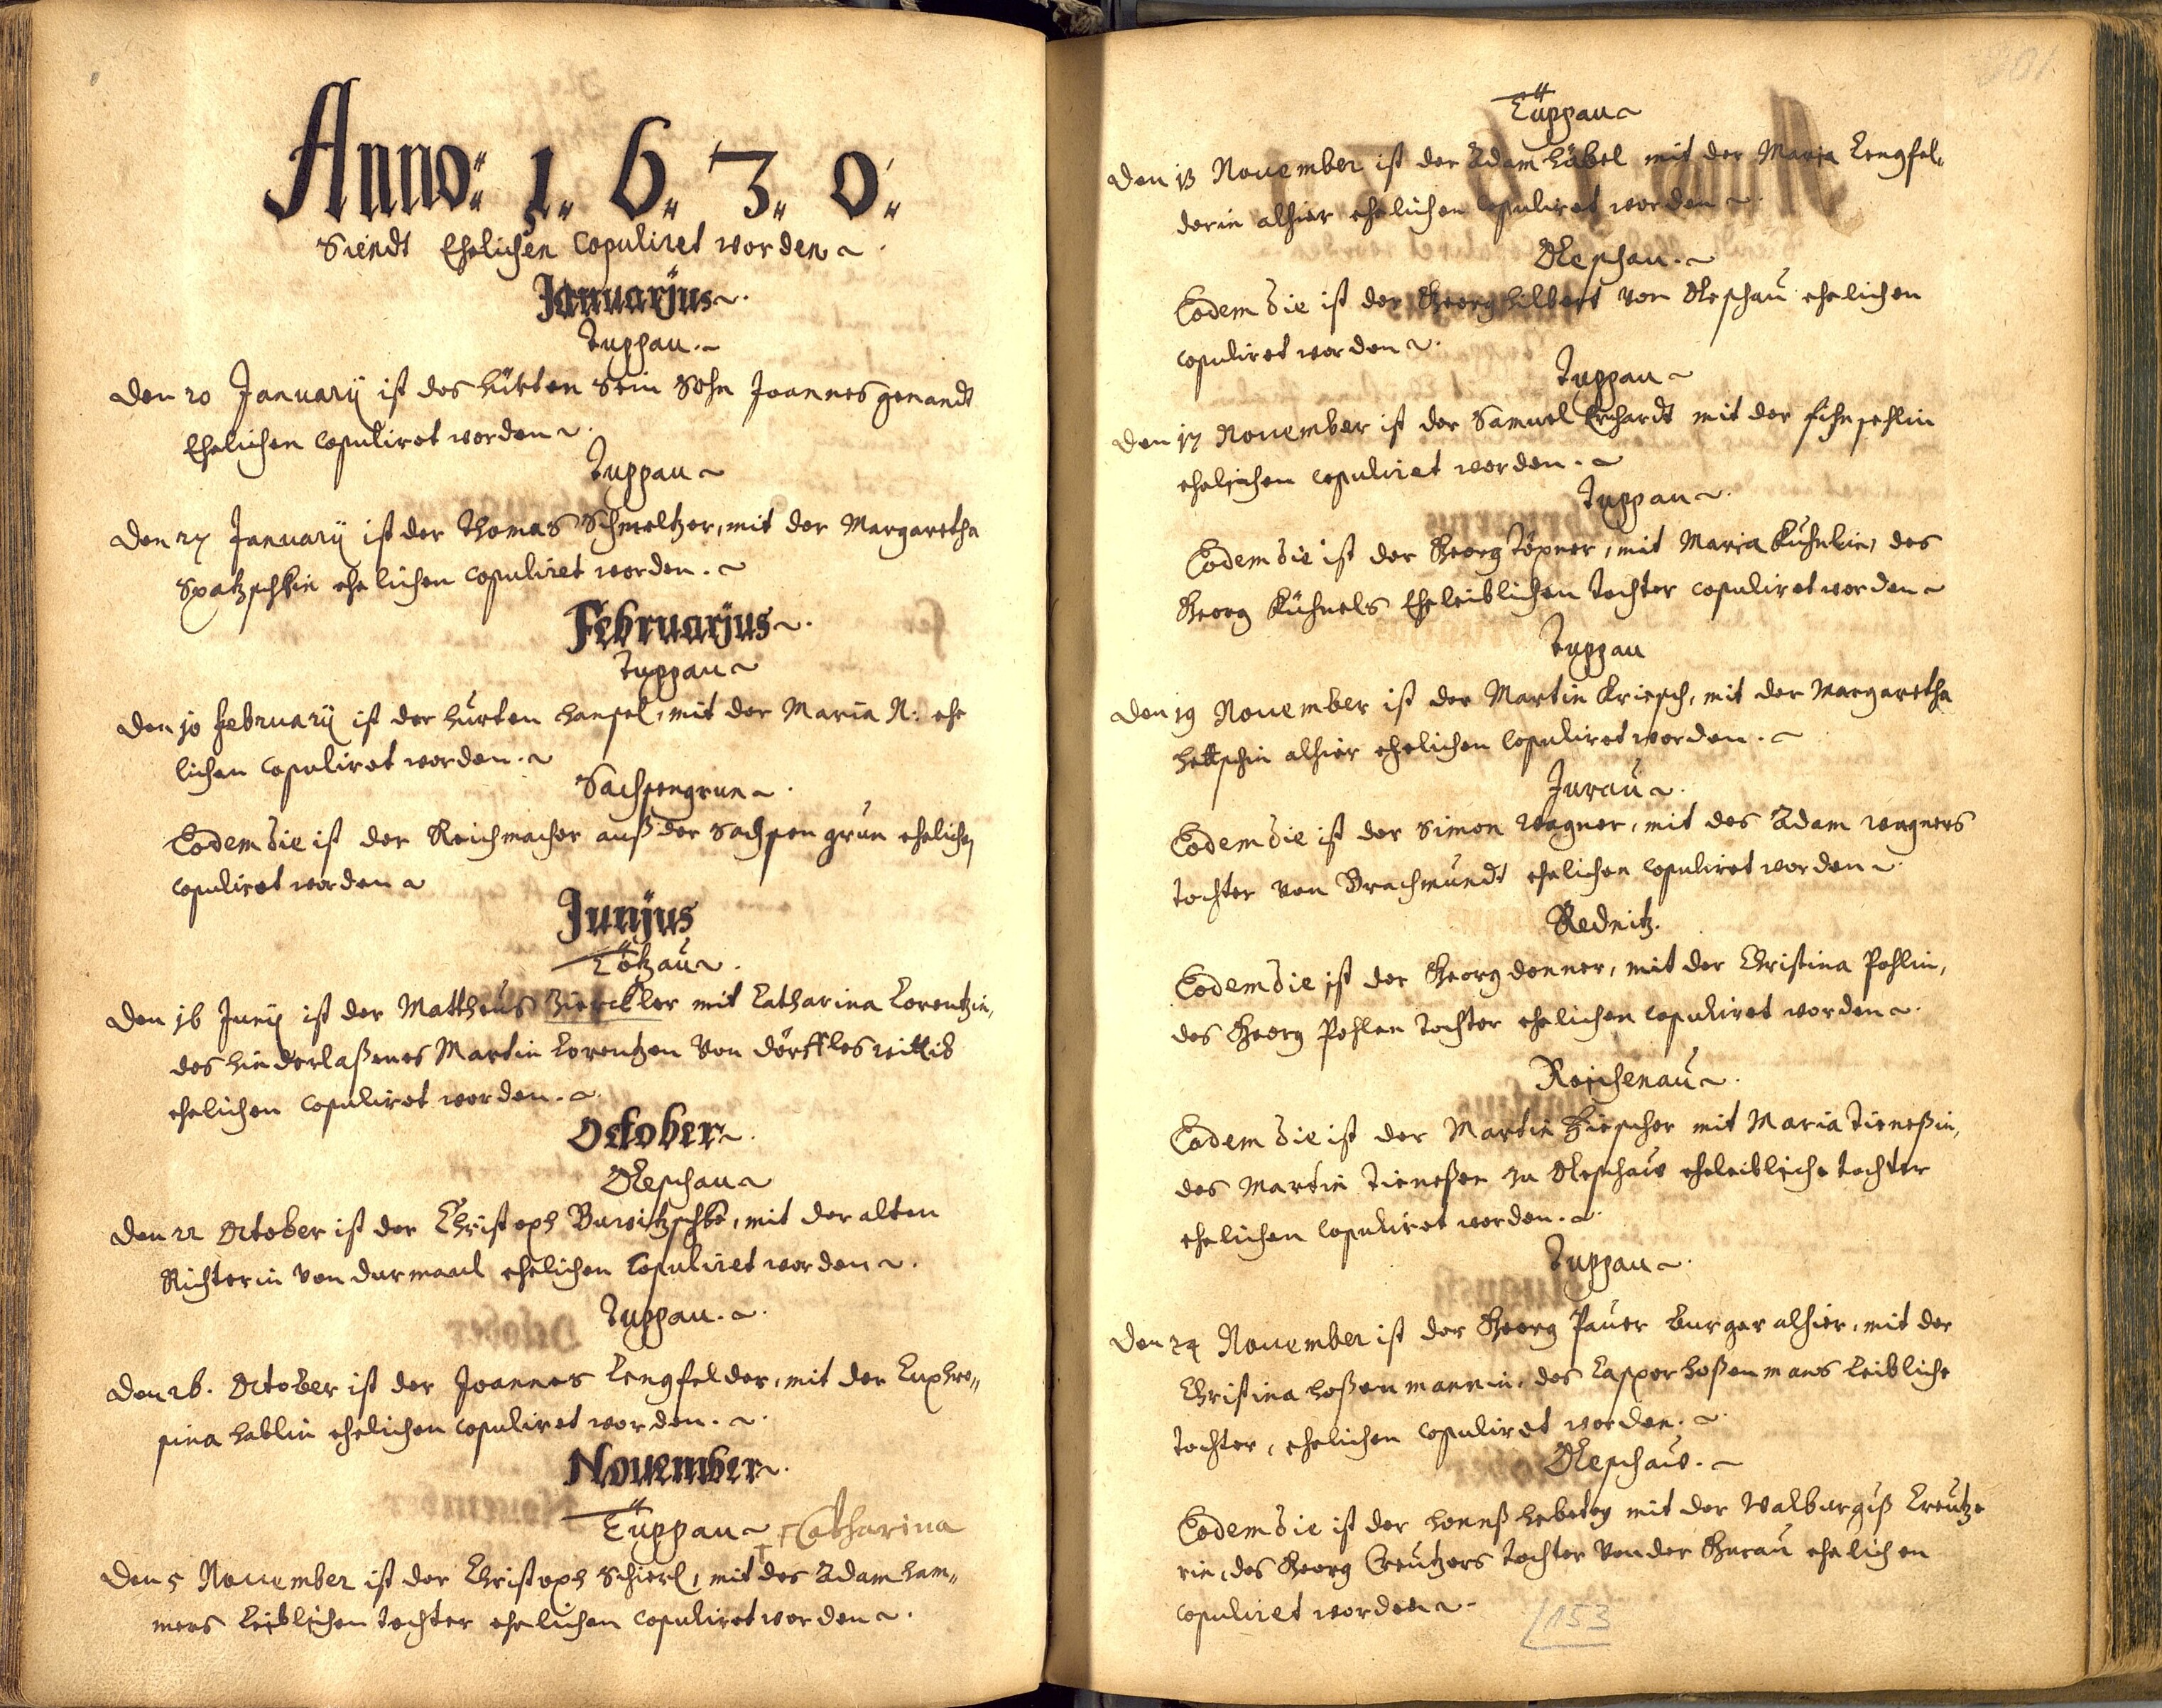 Anno: 1. 6. 3. 0.
Siendt Ehelichen Copuliret worden
Januarÿus
Tuppau
Den 20 Januarÿ ist des hürten Sein Sohn Joannes genandt
Ehelichen Copuliret worden
Tuppau
Den 27 Januarÿ ist der Thomas Schmeltzer, mit der Margaretha
ehelichen Copuliret worden.
Februarÿus
Tuppau
Den 10 Februarÿ ist der hürten Hansel, mit der Maria N: ehe
lichen Copuliret worden.
Sachsengrun
Eodem die ist der Reichmacher auß der Sachsen grün ehelichen
Copuliret worden
Junÿus
Tötzau
Den 16 Junÿ ist der Mattheus Zierckler mit Catharina Lorentzin,
des hinderlaßenes Martin Lorentzen Von dörffles
ehelichen Copuliret worden.
October
Oleschau
Den 22 October ist der Christoph, mit der alten
Richterin von Durmaul ehelichen Copuliret worden
Tuppau.
Den 26. October ist der Joannes Lengfelder, mit der Euphro„
sina Hablin ehelichen Copuliret worden.
November
Tüppau Catharina
Den 5 November ist der Christoph Schierl, mit des Adam Ham„
mers Leiblichen Tochter ehelichen Copuliret worden
101
Tüppau
Den 13 November ist der Adam Häbel mit der Maria Lengfel„
derin alhier ehelichen Copuliret worden
Oleschau.
Eodem die ist der Georg Hilbert von Oleschau ehelichen
Copuliret worden
Tuppau
Den 17 November ist der Samuel Erhardt mit der
ehelichen Copuliret worden.
Tuppau
Eodem die ist der Georg Töpner, mit Maria Kühnlin, des
Georg Kühnels Eheleiblichen Tochter Copuliret worden
Tuppau
Den 19 November ist der Martin Kriesch, mit der Margaretha
alhier ehelichen Copuliret worden.
Jurau
Eodem die ist der Simon Wagner, mit des Adam Wagners
Tochter von Brachmundt ehelichen Copuliret worden
Rednitz.
Eodem die ist der Georg Donner, mit der Christina Pohlin,
des Georg Pohlen Tochter ehelichen Copuliret worden
Reichenau
Eodem die ist der Martin Hirscher mit Maria Tieneßin,
des Martin Tieneßen zu Oleschau eheleibliche Tochter
ehelichen Copuliret worden.
Tuppau
Den 24 November ist der Georg Pauer Burger alhier, mit der
Christina Hoßenmannin, des Casper Hoßenmans Leibliche
Tochter, ehelichen Copuliret worden.
Oleschau.
Eodem die ist der Hannß mit der Walburgiß Creutze
rin, des Georg Creutzers Tochter von der Gurau ehelichen
Copuliret worden
153